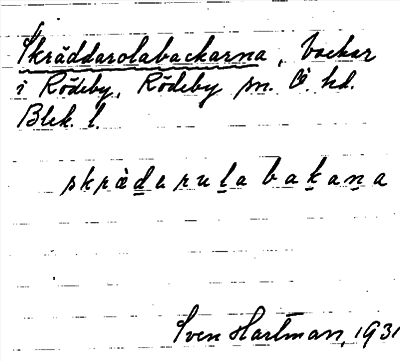 Skräddarolabackarna, backar
i Rödeby, Rödeby sn. Ö hd.
Blek. l.
skrädaruḻabaḵaṉa
Sven Hartman, 1931